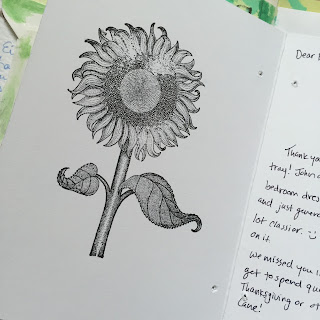 Dear
Thank you
tray! John
bedroom dres
and just gener
lot classier. :)
on it.
We missed you
get to spend qu
Thanksgiving or ot
Cane!